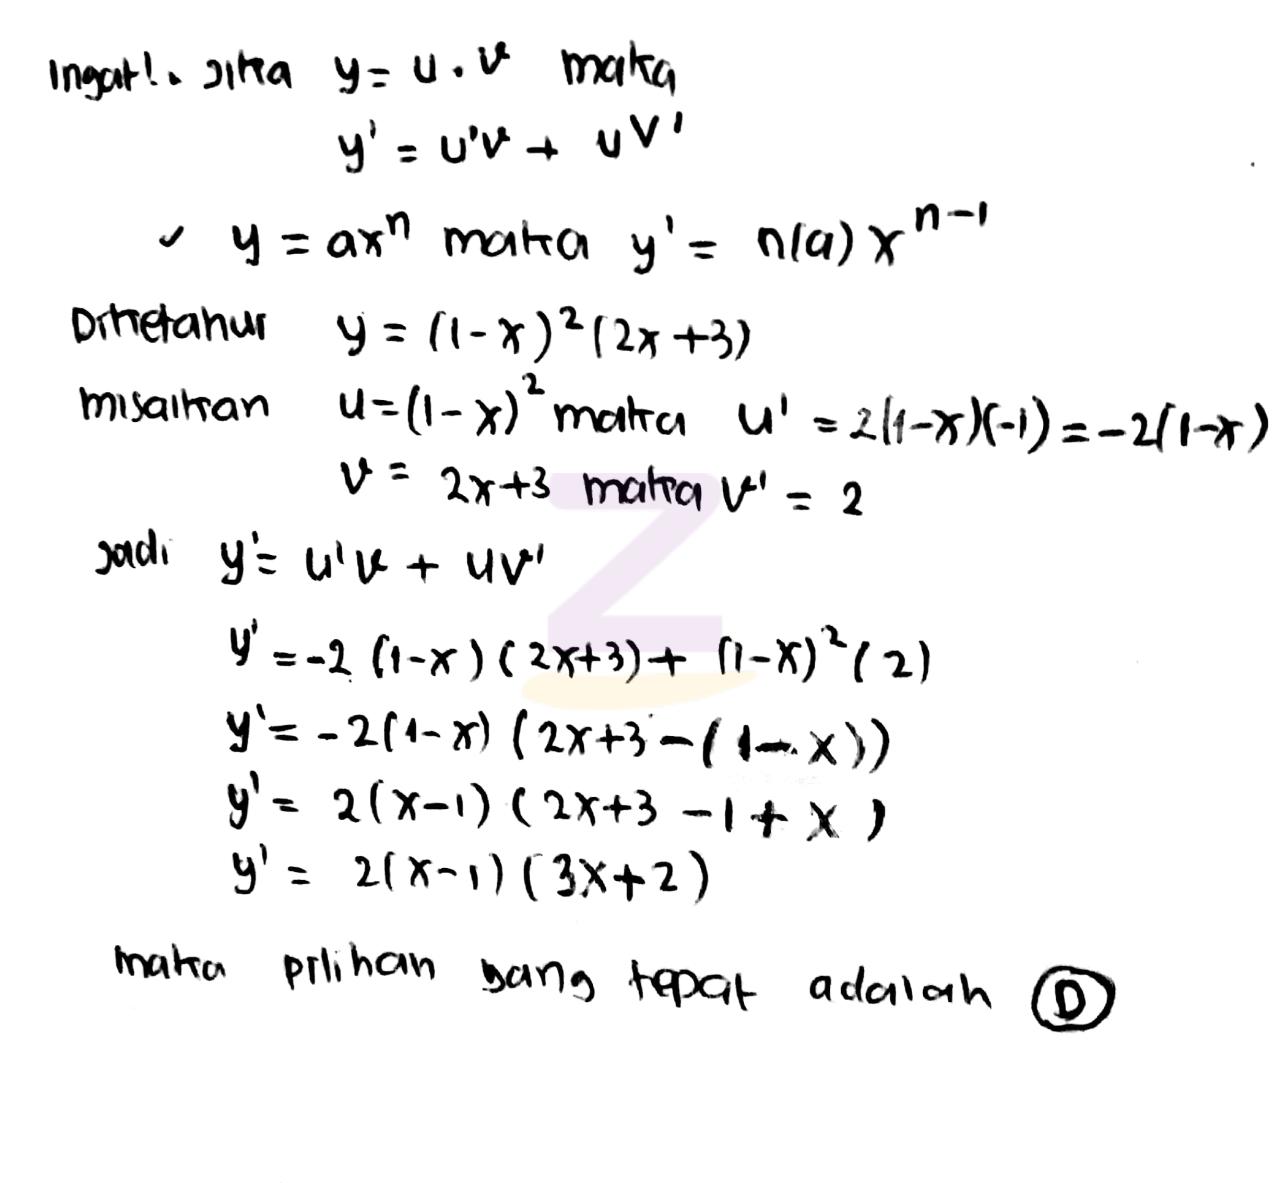 Ingat! . Jika y = u . v maka
y' = u'v + uv'
✓ y = ax^n maka y' = n(a) x^{n-1}
Diketahui y = (1-x)^2(2x+3)
misalkan u=(1-x)^2 maka u' = 2(1-x)(-1) = -2(1-x)
v = 2x+3 maka v' = 2
Jadi y' = u'v + uv'
y' = -2 (1-x)(2x+3) + (1-x)^2(2)
y' = -2(1-x) (2x+3 -(1-x))
y' = 2(x-1) (2x+3 -1+x)
y' = 2(x-1)(3x+2)
maka pilihan yang tepat adalah D